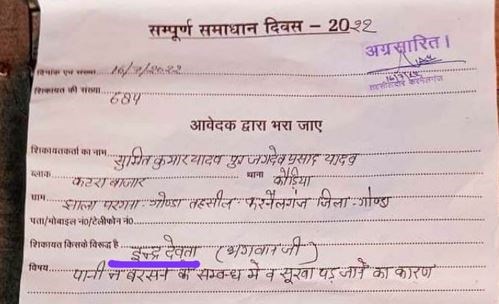 सम्पूर्ण समाधान दिवस – 2022
अग्रसारित।
दिनांक एवं समय 16/7/2022
शिकायत की संख्या 684
आवेदक द्वारा भरा जाए
शिकायतकर्ता का नाम सुमित कुमार यादव पुत्र जगदेव प्रसाद यादव
ब्लाक कटरा बाजार थाना कौड़िया
ग्राम झाला परगना - गोण्डा तहसील - करनैलगंज जिला - गोण्डा
पता/मोबाइल नं०/टेलीफोन नं०
शिकायत किसके विरूद्ध है इन्द्र देवता (भगवान जी)
विषय पानी न बरसने के सम्बन्ध में व सूखा पड़ जाने का कारण